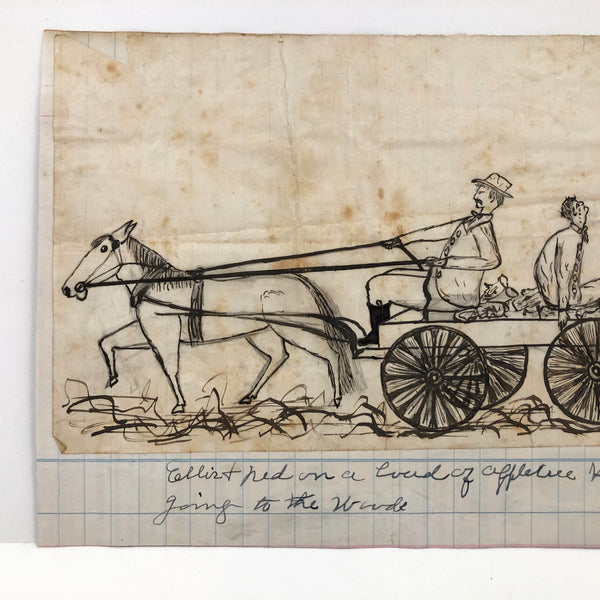 Ellis + on a load of appletree
going to the Woods